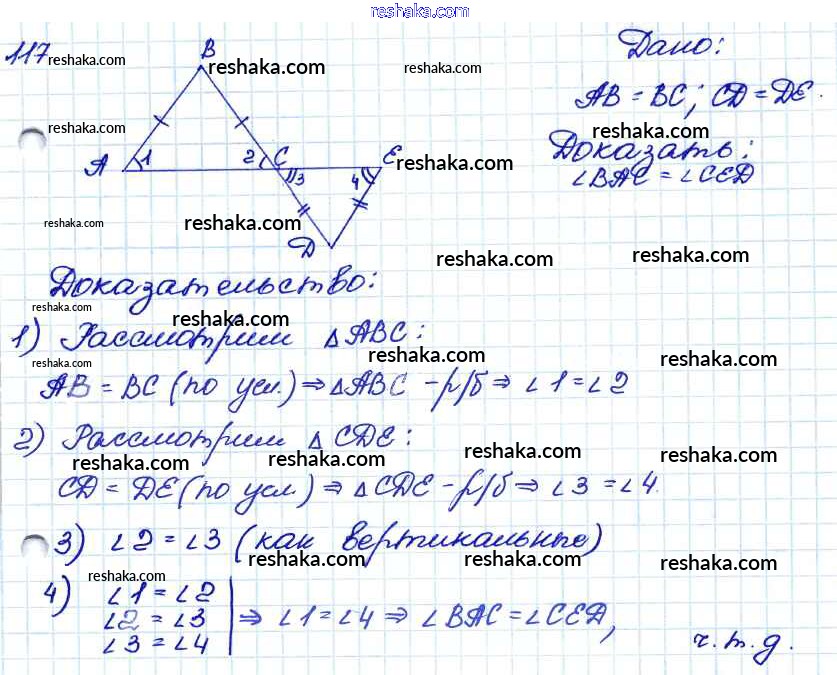 reshaka.com
117 reshaka.com
B
reshaka.com
reshaka.com
Дано:
AB = BC; CD = DE.
reshaka.com
reshaka.com
Доказать:
∠BAC = ∠CED
A 1 2 C 3 4 E
reshaka.com
reshaka.com
reshaka.com
D
reshaka.com
reshaka.com
Доказательство:
reshaka.com
reshaka.com
1) Рассмотрим △ABC:
reshaka.com
reshaka.com
reshaka.com
AB = BC (по усл.) ⇒ △ABC - р/б ⇒ ∠1 = ∠2
2) Рассмотрим △CDE:
reshaka.com
reshaka.com
reshaka.com
reshaka.com
CD = DE (по усл.) ⇒ △CDE - р/б ⇒ ∠3 = ∠4.
3) ∠2 = ∠3 (как вертикальные)
reshaka.com
reshaka.com
reshaka.com
reshaka.com
4) ∠1 = ∠2
∠2 = ∠3 ⇒ ∠1 = ∠4 ⇒ ∠BAC = ∠CED,
∠3 = ∠4
ч.т.д.